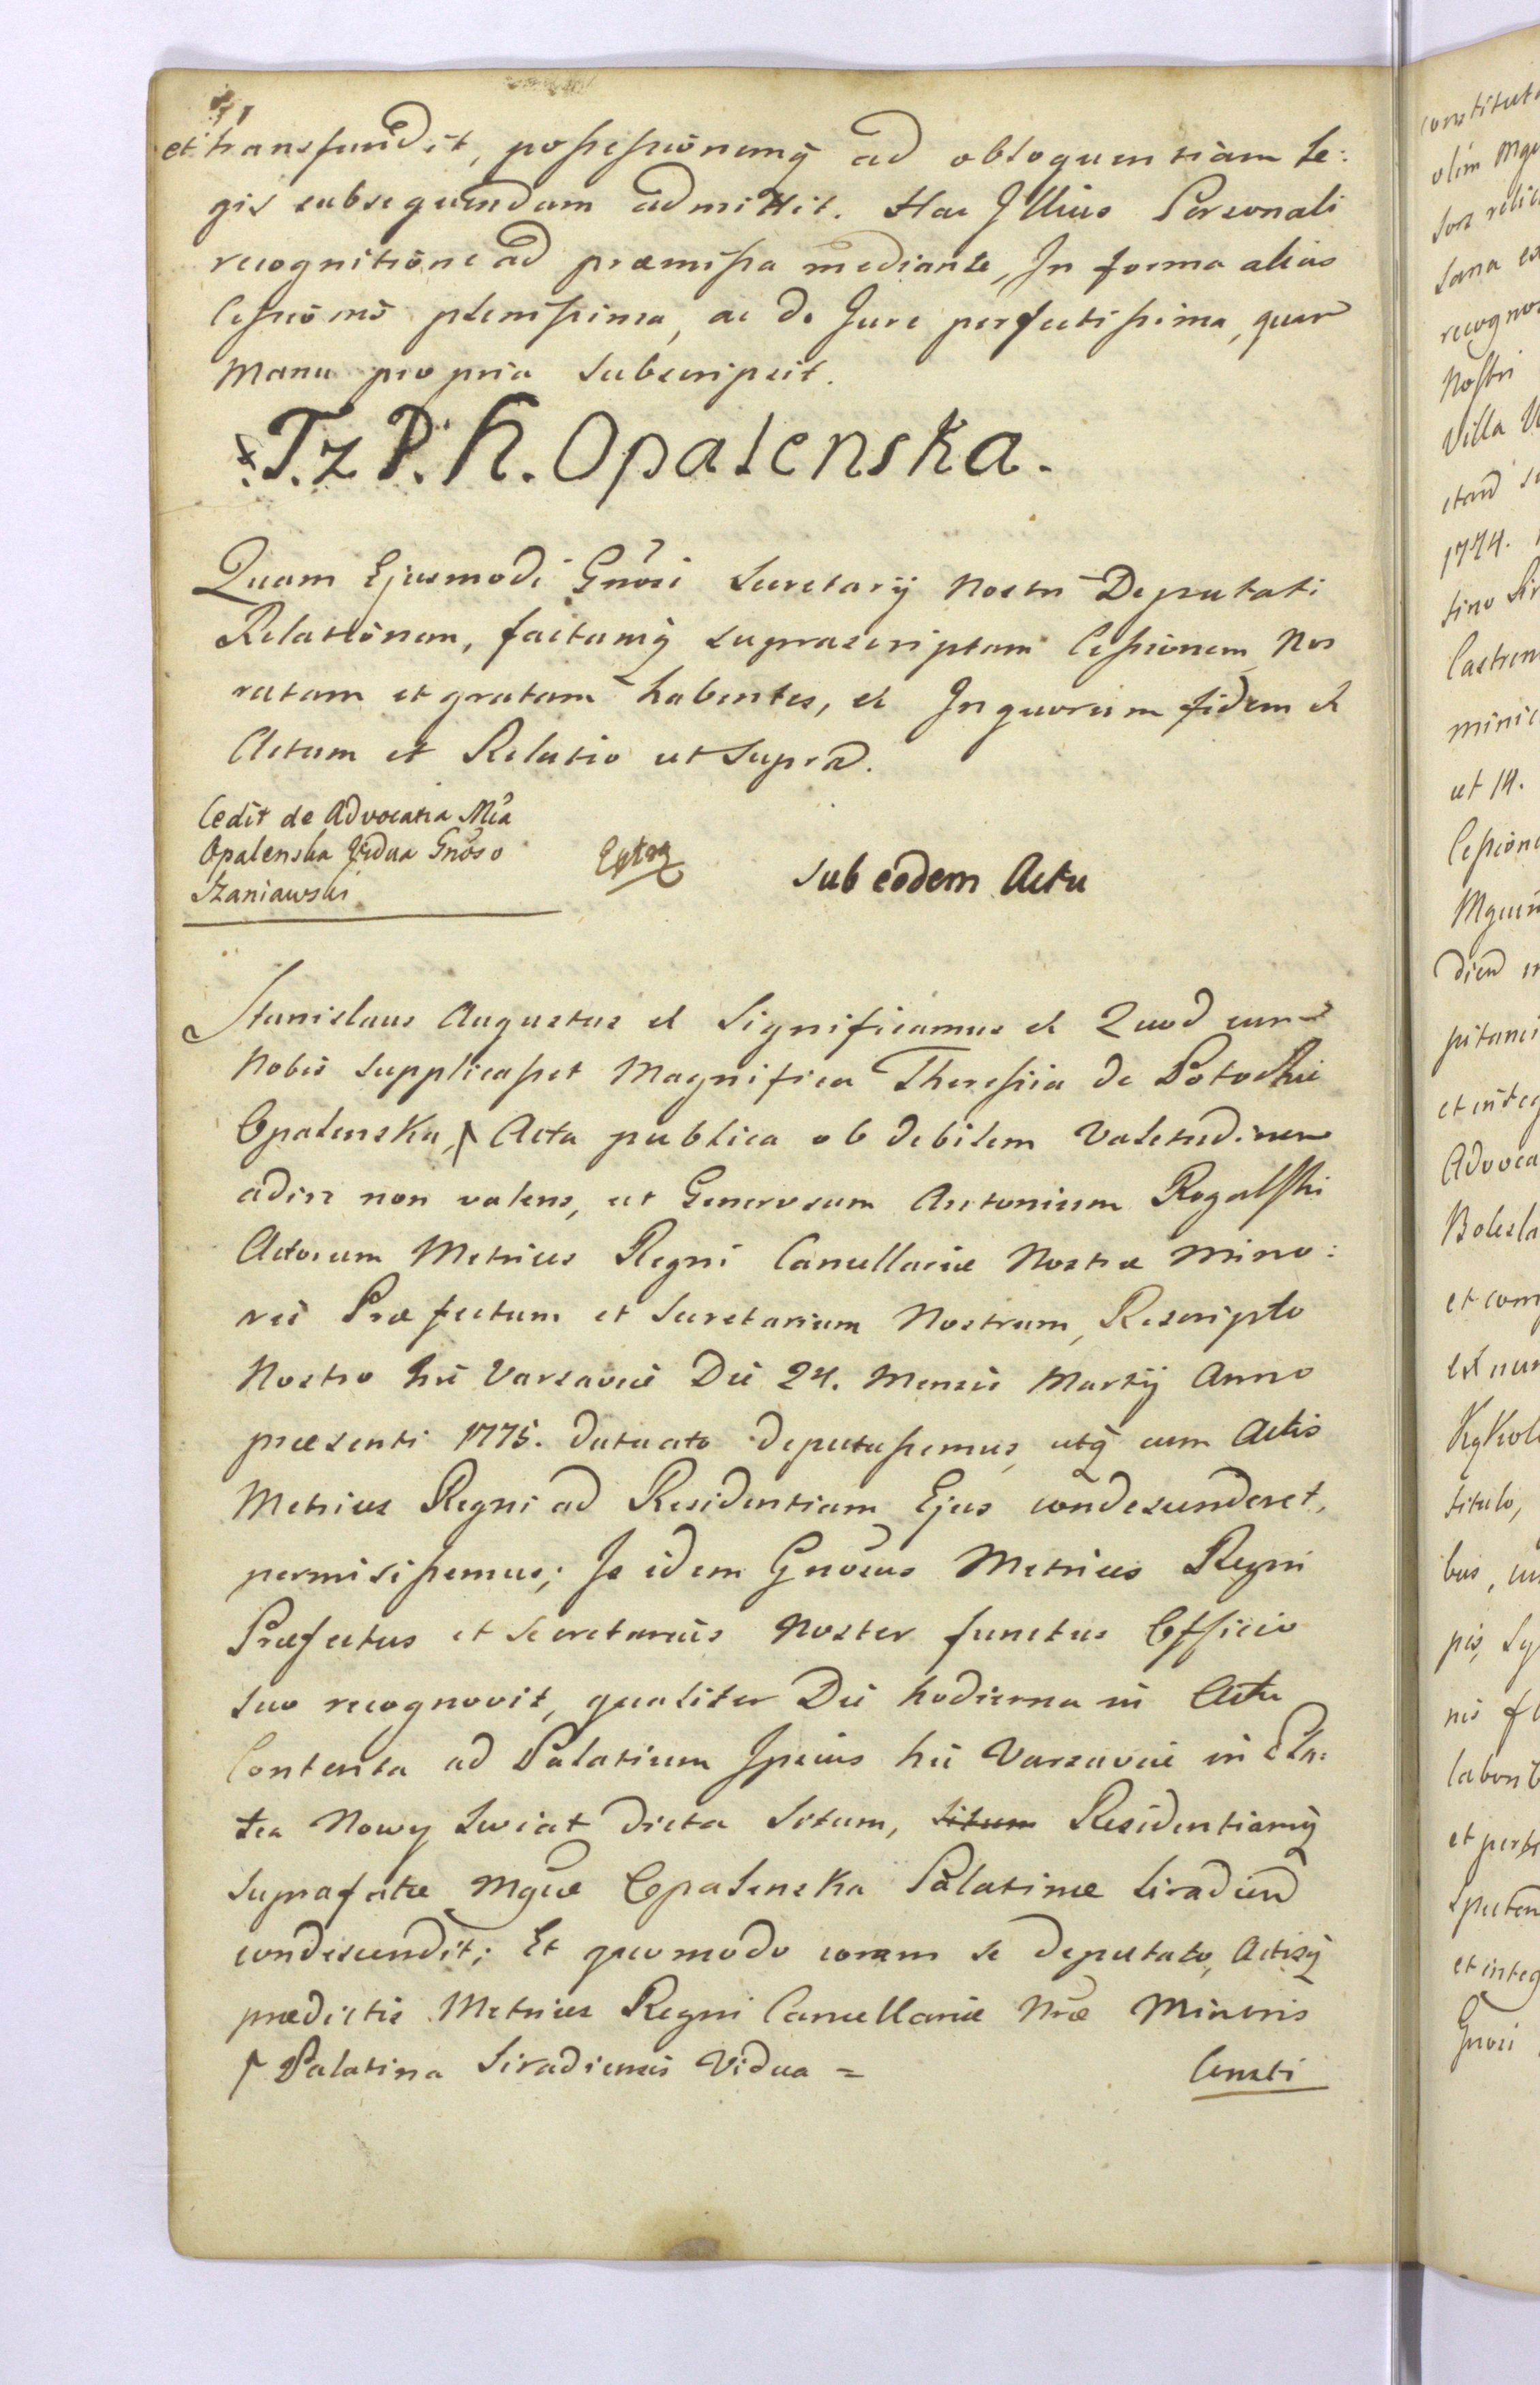 et transfundit, possessionemq̃ ad obloquentiam Le:
gis subsequendam admittit. Hac Illius Personali
recognitione ad præmissa mediante, In forma alias
Cessionis plenissima, ac de Jure perfectissima, quam
Manu propria subscripsit.
T. z P. H. Opalenska.
Quam Ejusmodi Gñosi Secretarÿ Nostri Deputati
Relationem, factamq̃ suprascriptam Cessionem Nos
ratam et gratam habentes, et In quorum fidem et
Actum et Relatio ut Supra.
Cedit de Advocatia Mĩa
Opalenska Vidua Gñoso
Szaniawski
Extra
Sub eodem Actu
Stanislaus Augustus et Significamus et Quod cum
Nobis supplicasset Magnifica Theressia de Potockie
Opalenska, ꝑ Acta publica ob debilem Valetudinem
adire non valens, ut Generosum Antonium Rogalski
Actorum Metrices Regni Cancellariæ Nostræ mino:
ris Præfectum et Secretarium Nostrum, Rescripto
Nostro hic Varsaviæ Die 24. Mensis Martÿ Anno
præsenti 1775. datuato deputassemus, utq̃ cum Actis
Metrices Regni ad Residentiam Ejus condescenderet,
permisissemus; Is idem Gñosus Metrices Regni
Præfectus et Secretarius Noster functus Officio
suo recognovit, qualiter Die hodierna in Actu
Contenta ad Palatium Ipsius hic Varsaviæ in Pla:
tea Nowy Swiat dicta Situm, situm Residentiamq̃
suprafatæ Mgcæ Opalenska Palatinæ Siradien̄
condescendit; Et quomodo coram se deputato, Actisq̃
prædictis Metrices Regni Cancellariæ Nr̃æ Minoris
ꝑ Palatina Siradiensis Vidua =
Consti
constitut
olim Mgu
recognos
Nostri
Villa
1774.
Castren
minic
ut 14.
Cession
dien
pitanei
et integ
Advoca
Bolesla
et com
ex nun
titulo,
bus,
et integ
Gnosi